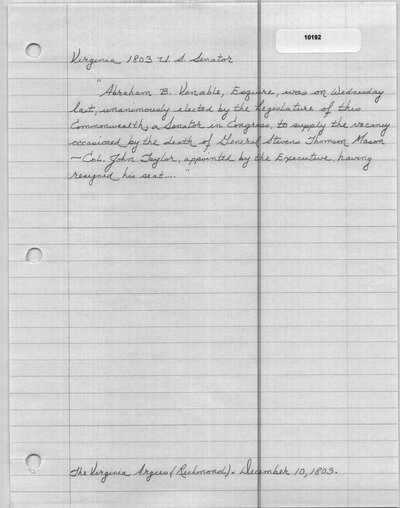 10192
Virginia 1803 U. S. Senator
"Abraham B. Venable, Esquire, was on Wednesday
last, unanimously elected by the Legislature of this
Commonwealth, a Senator in Congress, to supply the vacancy
occasioned by the death of General Stevens Thomson Mason
— Col. John Taylor, appointed by the Executive, having
resigned his seat...."
The Virginia Argus (Richmond). December 10, 1803.